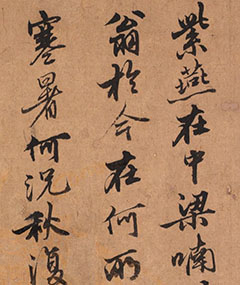 紫燕在中梁喃
翁於今在何所
寒暑何況秋復